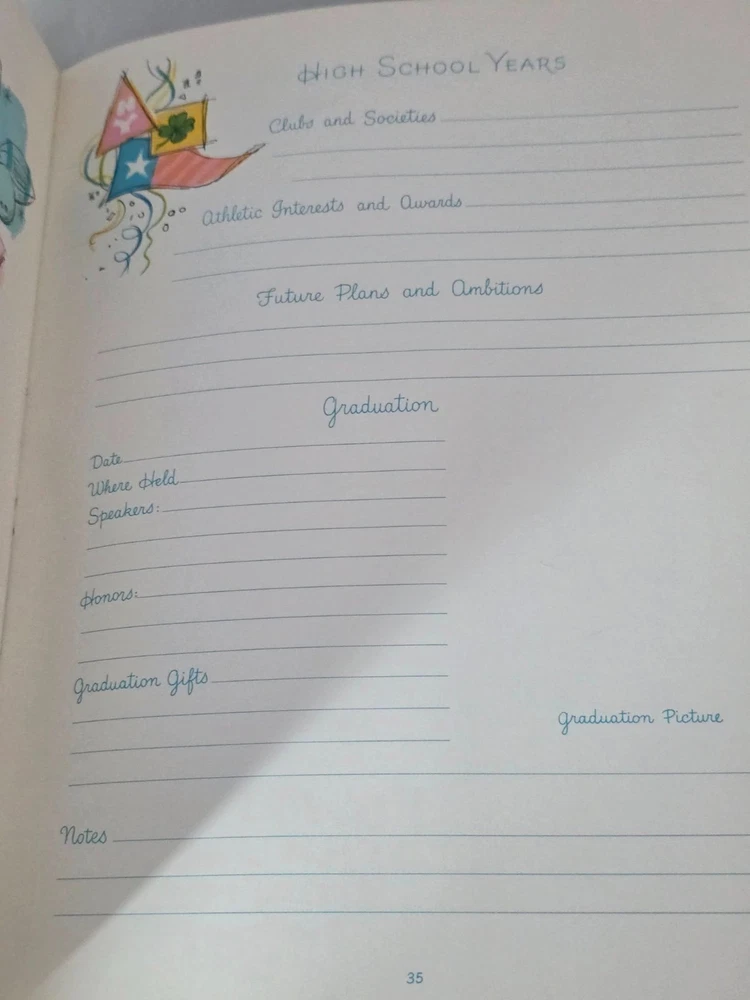 High School Years
Clubs and Societies
Athletic Interests and Awards
Future Plans and Ambitions
Graduation
Date
Where Held
Speakers:
Honors:
Graduation Gifts
Graduation Picture
Notes
35